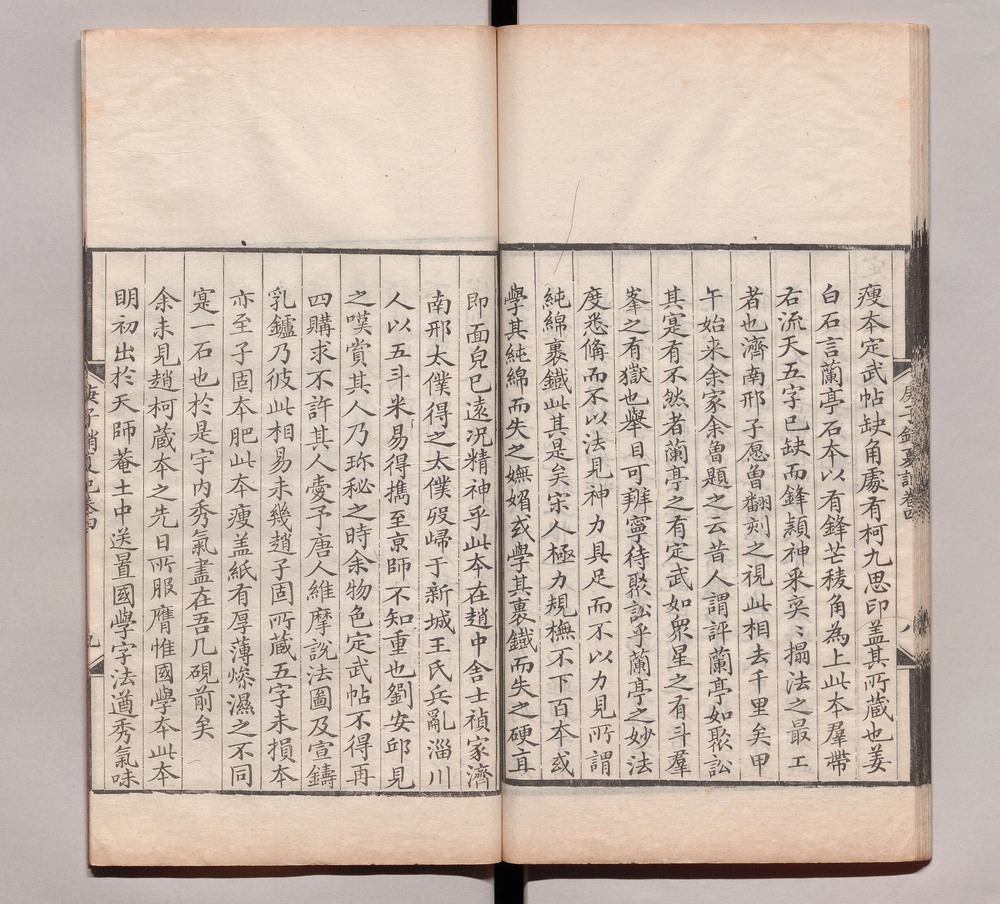 瘦本定武帖缺角處有柯九思印盖其所藏也姜
白石言蘭亭石本以有鋒芒稜角為上此本羣帶
右流天五字已缺而鋒頴神采奕〻搨法之最工
者也濟南邢子愿曾翻刻之視此相去千里矣甲
午始来余家余曾題之云昔人謂評蘭亭如聚訟
其寔有不然者蘭亭之有定武如衆星之有斗羣
峯之有嶽也舉目可辨寧待聚訟乎蘭亭之妙法
度悉俻而不以法見神力具足而不以力見所謂
純綿裹鐵此其是矣宋人極力規橅不下百本或
學其純綿而失之嫵媚或學其裹鐵而失之硬直
即面皃已遠况精神乎此本在趙中舍士禎家濟
南邢太僕得之太僕歿歸于新城王氏兵亂淄川
人以五斗米易得攜至京師不知重也劉安邱見
之嘆賞其人乃珎秘之時余物色定武帖不得再
四購求不許其人愛予唐人維摩說法圖及宣鑄
乳鑪乃彼此相易未幾趙子固所藏五字未損本
亦至子固本肥此本瘦盖紙有厚薄燥濕之不同
寔一石也於是宇内秀氣盡在吾几硯前矣
余未見趙柯藏本之先日所服膺惟國學本此本
明初出於天師菴土中送置國學字法遒秀氣味
庚子銷夏記卷四
八
庚子銷夏記卷四
九